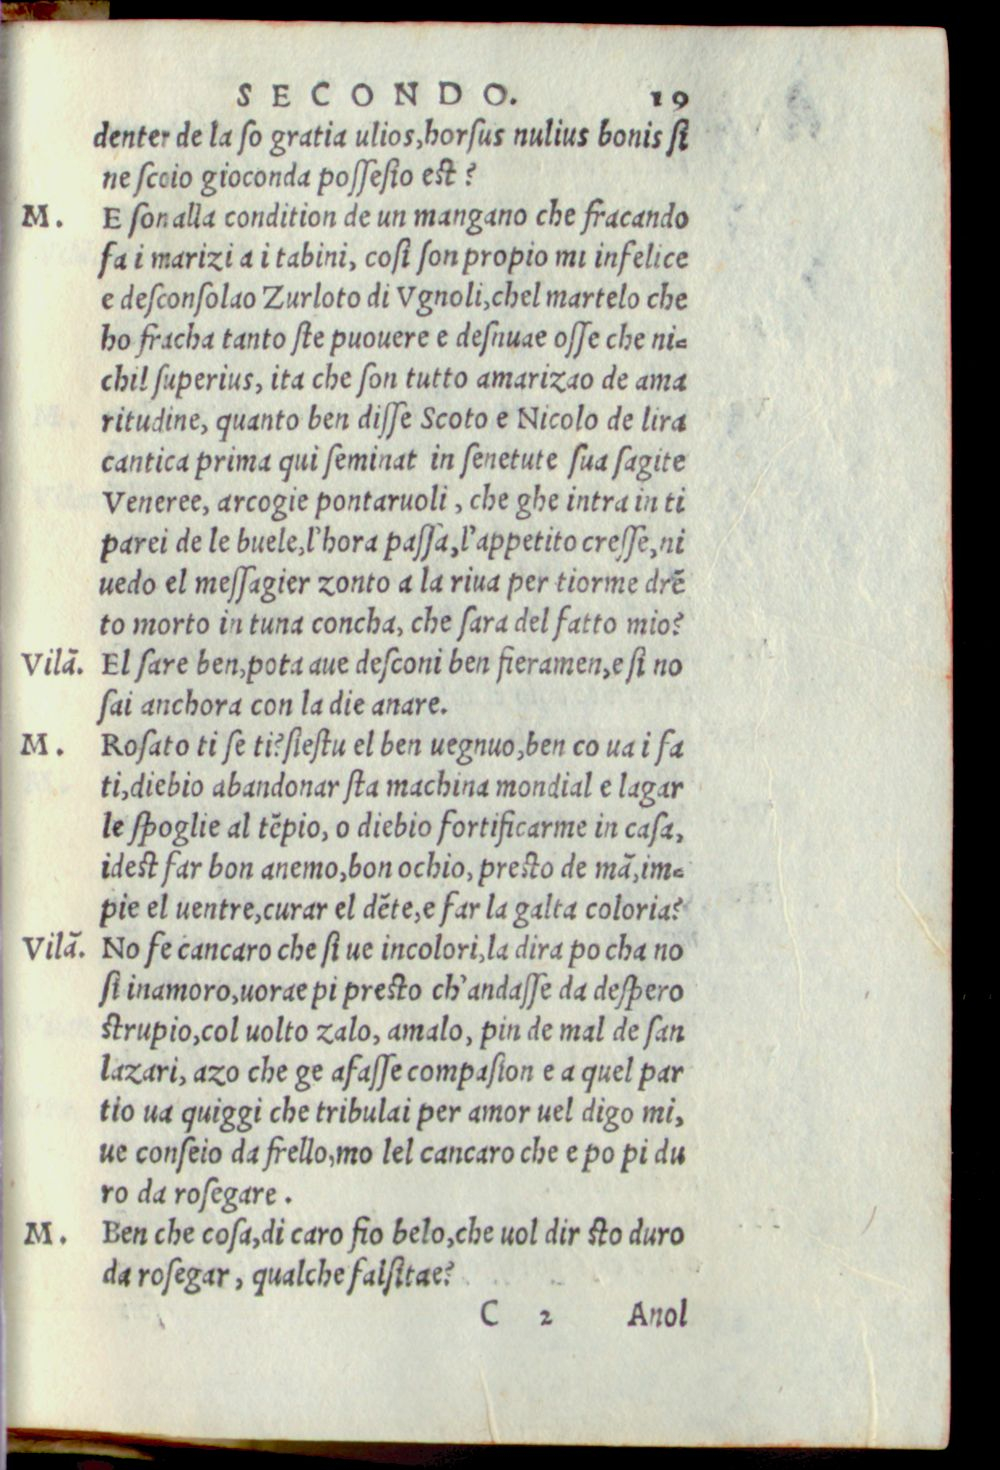 SECONDO. 19
denter de la ſo gratia ulios,horſus nulius bonis ſi
ne ſcoio gioconda poſſeſio est ?
M. E ſon alla condition de un mangano che fracando
fa i marizi a i tabini, coſi ſon propio mi infelice
e deſconſolao Zurloto di Vgnoli,chel martelo che
ho fracha tanto ſte puouere e deſnuae oſſe che ni=
chil ſuperius, ita che ſon tutto amarizao de ama
ritudine, quanto ben diſſe Scoto e Nicolo de lira
cantica prima qui ſeminat in ſenetute ſua ſagite
Veneree, arcogie pontaruoli , che ghe intra in ti
parei de le buele,l'hora paſſa,l'appetito creſſe,ni
uedo el meſſagier zonto a la riua per tiorme drē
to morto in tuna concha, che ſara del fatto mio?
Vilā. El ſare ben,pota aue deſconi ben fieramen,e ſi no
ſai anchora con la die anare.
M. Roſato ti ſe ti?ſieſtu el ben uegnuo,ben co ua i fa
ti,diebio abandonar ſta machina mondial e lagar
le ſpoglie al tēpio, o diebio fortificarme in caſa,
idest far bon anemo,bon ochio, presto de mā,im=
pie el uentre,curar el dēte,e far la galta coloria?
Vilā. No fe cancaro che ſi ue incolori,la dira po cha no
ſi inamoro,uorae pi presto ch'andaſſe da deſpero
strupio,col uolto zalo, amalo, pin de mal de ſan
lazari, azo che ge afaſſe compaſion e a quel par
tio ua quiggi che tribulai per amor uel digo mi,
ue conſeio da frello,mo lel cancaro che e po pi du
ro da roſegare .
M. Ben che coſa,di caro fio belo,che uol dir sto duro
da roſegar , qualche falſitae?
C 2 Anol